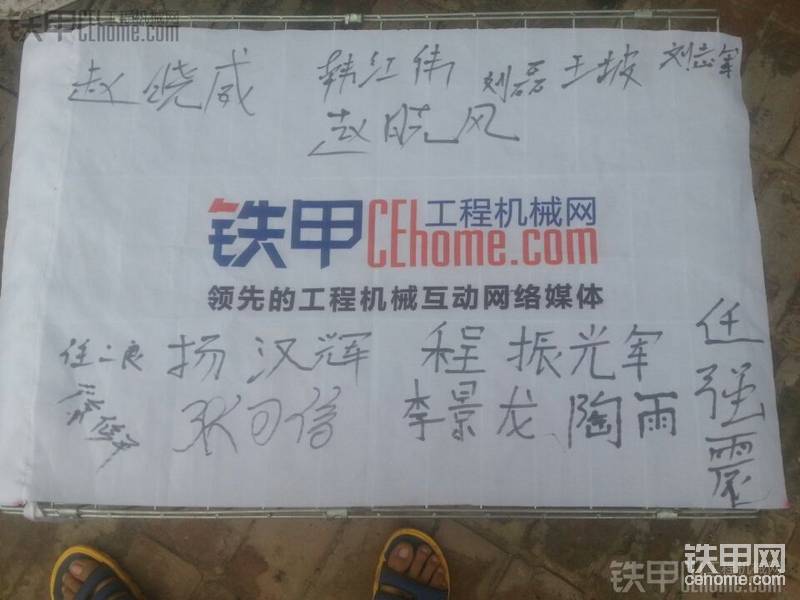 铁甲 工程机械网 CEhome.com
赵晓威 韩红伟 刘磊 王披 刘志军
赵晓风
铁甲 CEhome.com 工程机械网
领先的工程机械互动网络媒体
任二良 扬汉辉 程振光军 任强震
张可信 李景龙 陶雨
铁甲网
cehome.com
铁甲 工程机械网